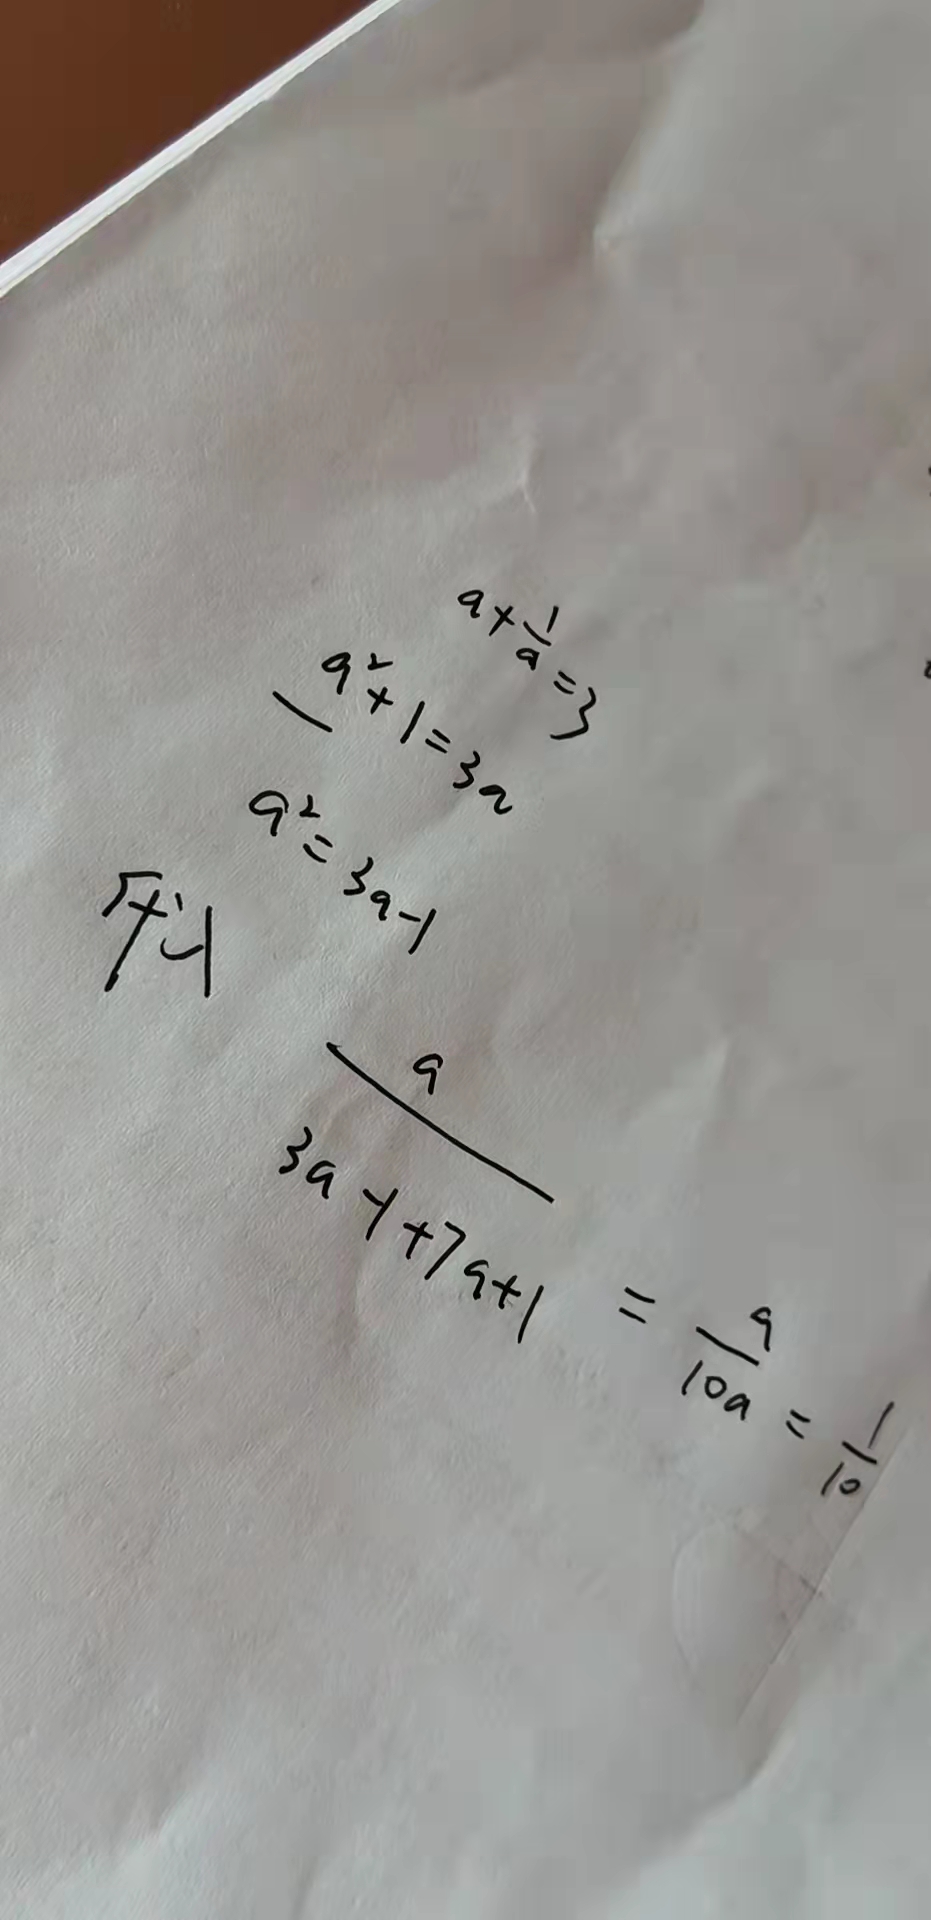 a+1/a=3
a²+1=3a
a²=3a-1
所以
a/(3a-1+7a+1) = a/10a = 1/10